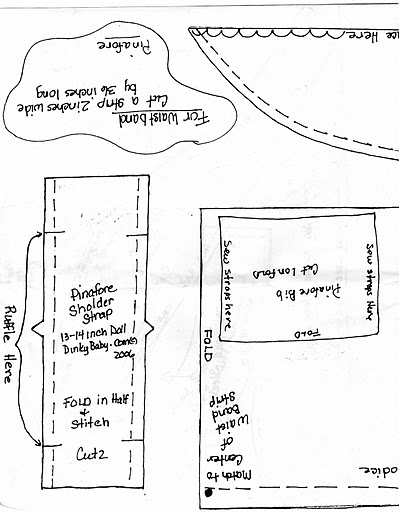 Pinafore
For Waistband
Cut a strip 2 inches wide
by 36 inches long
ace Here
Ruffle Here
Pinafore
Sholder
Strap
13-14 inch Doll
Dinky Baby.
2006
FOLD in Half
+
Stitch
Cut 2
Sew straps here
Pinafore Bib
Cut 1 on Fold
Sew straps Here
FOLD
FOLD
Match to
Center
of
Waist Band
Strip
odice